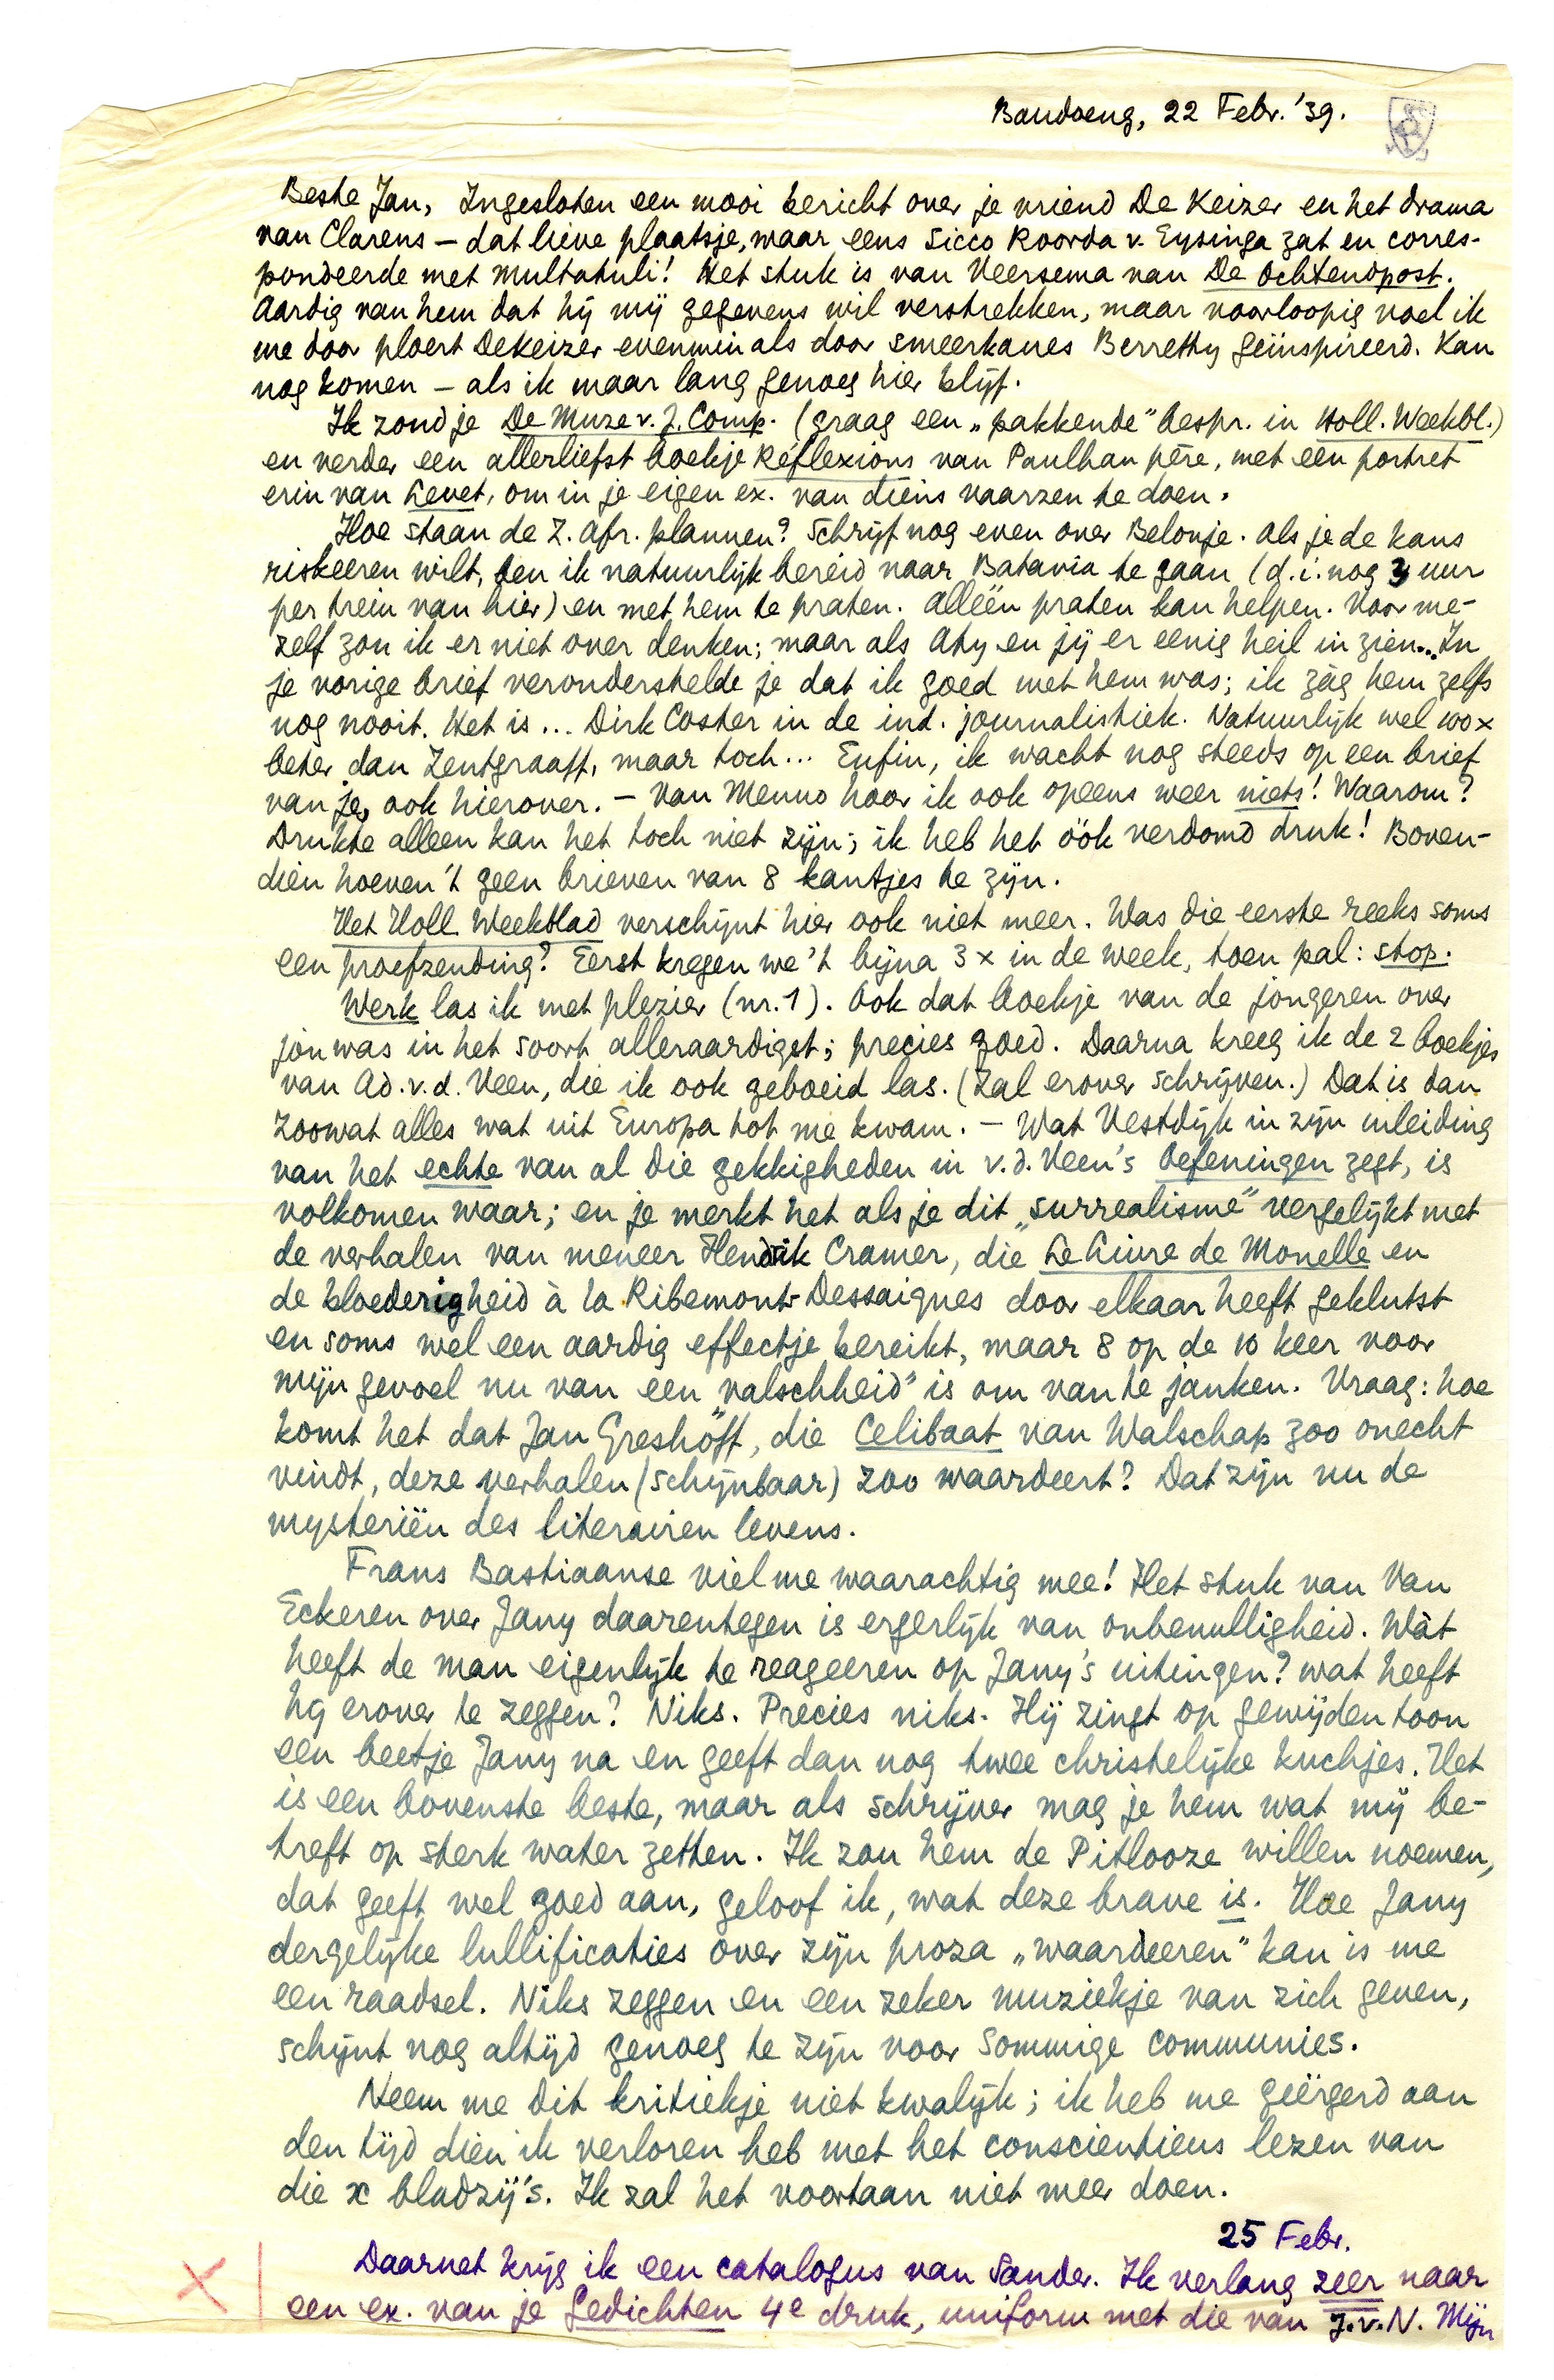 Bandoeng, 22 Febr. '39.
Beste Jan, Ingesloten een mooi bericht over je vriend De Keizer en het drama
van Clarens – dat lieve plaatsje, waar eens Sicco Roorda v. Eysinga zat en corres-
pondeerde met Multatuli! Het stuk is van Veersema van De Ochtendpost.
Aardig van hem dat hij mij gegevens wil verstrekken, maar voorloopig voel ik
me door ploert Dekeizer evenmin als door smeerkanes Berretty geïnspireerd. Kan
nog komen – als ik maar lang genoeg hier blijf.
Ik zond je De Muze v. J. Comp. (graag een „pakkende" bespr. in Holl. Weekbl.)
en verder een allerliefst boekje Réflexions van Paulhan père, met een portret
erin van Levet, om in je eigen ex. van diens vaarzen te doen.
Hoe staan de Z. Afr. plannen? Schrijf nog even over Belonje. Als je de kans
riskeeren wilt, ben ik natuurlijk bereid naar Batavia te gaan (d.i. nog 3 uur
per trein van hier) en met hem te praten. Alléén praten kan helpen. Voor me-
zelf zou ik er niet over denken; maar als Aty en jij er eenig heil in zien... In
je vorige brief veronderstelde je dat ik goed met hem was; ik zàg hem zelfs
nog nooit. Het is ... Dirk Coster in de ind. journalistiek. Natuurlijk wel 100 x
beter dan Zentgraaff, maar toch... Enfin, ik wacht nog steeds op een brief
van je, ook hierover. – Van Menno hoor ik ook opeens weer niets! Waarom?
Drukte alleen kan het toch niet zijn; ik heb het óók verdomd druk! Boven-
dien hoeven 't geen brieven van 8 kantjes te zijn.
Het Holl. Weekblad verschijnt hier ook niet meer. Was die eerste reeks soms
een proefzending? Eerst kregen we 't bijna 3 x in de week, toen pal: stop.
Werk las ik met plezier (nr. 1). Ook dat boekje van de jongeren over
jou was in het soort alleraardigst; precies goed. Daarna kreeg ik de 2 boekjes
van Ad. v.d. Veen, die ik ook geboeid las. (Zal erover schrijven.) Dat is dan
zoowat alles wat uit Europa tot me kwam. – Wat Vestdijk in zijn inleiding
van het echte van al die gekkigheden in v.d. Veen's Oefeningen zegt, is
volkomen waar; en je merkt het als je dit „surrealisme" vergelijkt met
de verhalen van meneer Hendrik Cramer, die Le Livre de Monelle en
de bloederigheid à la Ribemont-Dessaignes door elkaar heeft geklutst
en soms wel een aardig effectje bereikt, maar 8 op de 10 keer voor
mijn gevoel nu van een „valschheid" is om van te janken. Vraag: hoe
komt het dat Jan Greshoff, die Celibaat van Walschap zoo onecht
vindt, deze verhalen (schijnbaar) zoo waardeert? Dat zijn nu de
mysteriën des literairen levens.
Frans Bastiaanse viel me waarachtig mee! Het stuk van Van
Eckeren over Jany daarentegen is ergerlijk van onbenulligheid. Wàt
heeft de man eigenlijk te reageeren op Jany's uitingen? wat heeft
hij erover te zeggen? Niks. Precies niks. Hij zingt op gewijden toon
een beetje Jany na en geeft dan nog twee christelijke kuchjes. Het
is een bovenste beste, maar als schrijver mag je hem wat mij be-
treft op sterk water zetten. Ik zou hem de Pitlooze willen noemen,
dat geeft wel goed aan, geloof ik, wat deze brave is. Hoe Jany
dergelijke lullificaties over zijn proza „waardeeren" kan is me
een raadsel. Niks zeggen en een zeker muziekje van zich geven,
schijnt nog altijd genoeg te zijn voor sommige communies.
Neem me dit kritiekje niet kwalijk; ik heb me geërgerd aan
den tijd dien ik verloren heb met het conscientieus lezen van
die x bladzij's. Ik zal het voortaan niet meer doen.
25 Febr.
Daarnet krijg ik een catalogus van Sander. Ik verlang zeer naar
een ex. van je Gedichten 4e druk, uniform met die van J.v.N. Mijn